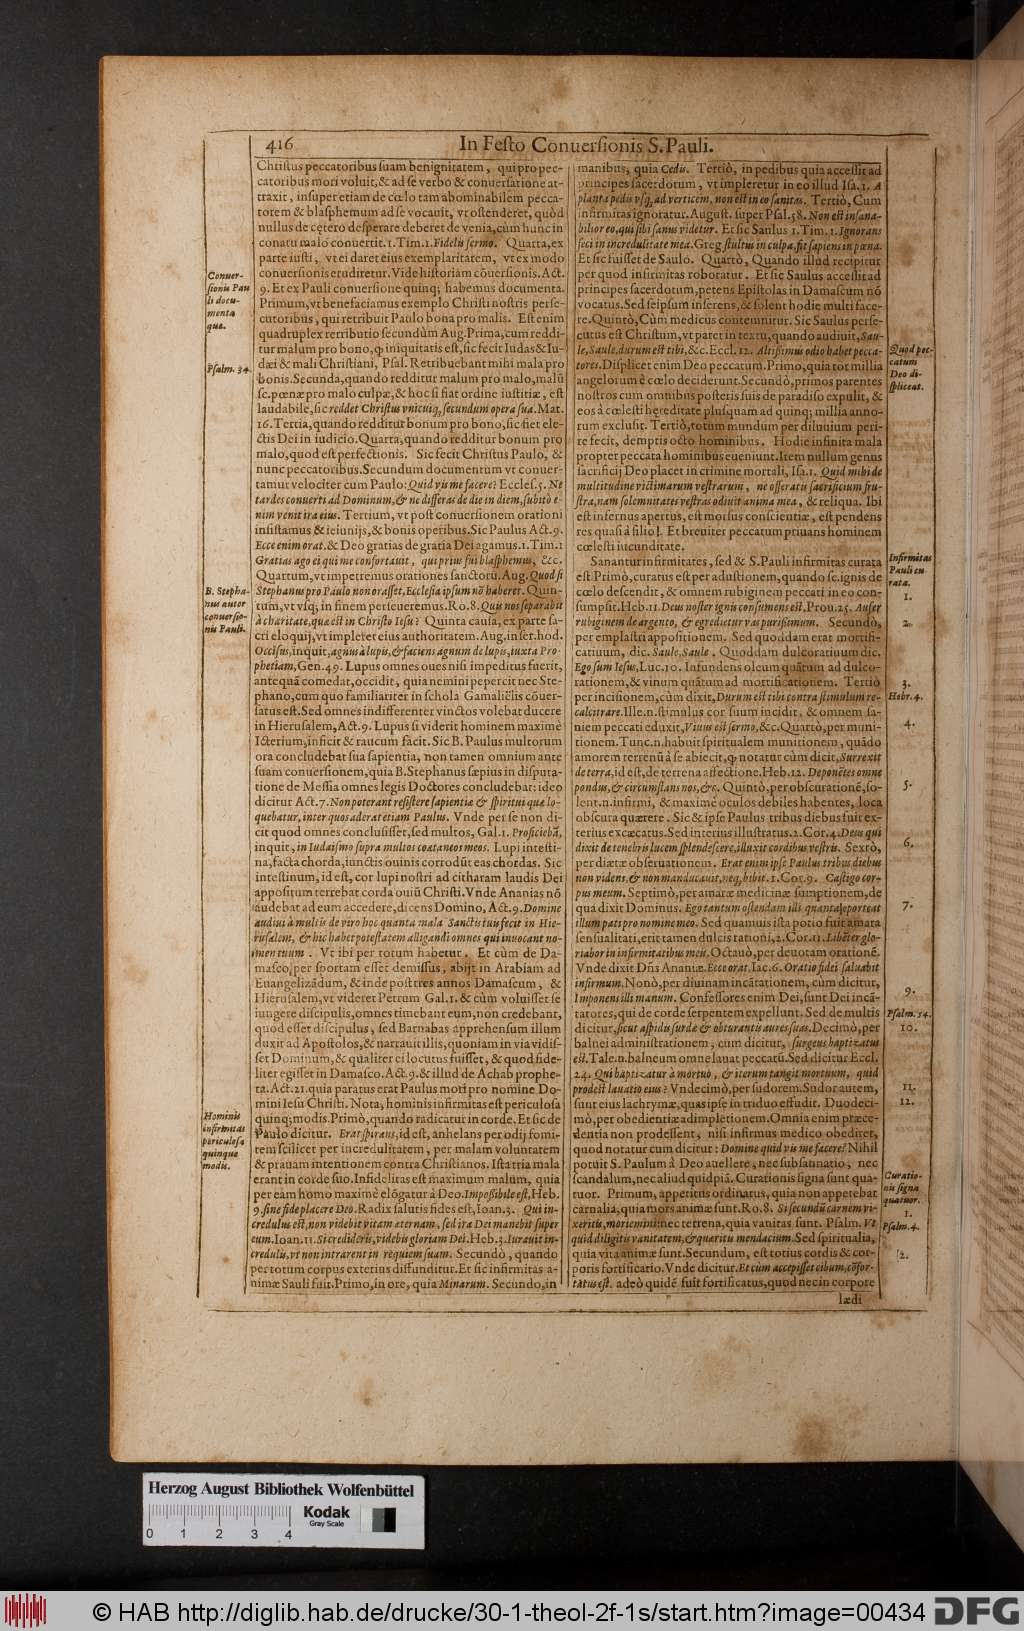 416
In Festo Conuersionis S. Pauli.
Christus peccatoribus suam benignitatem, qui pro pec-
catoribus mori voluit, & ad se verbo & conuersatione at-
traxit, insuper etiam de cœlo tam abominabilem pecca-
torem & blasphemum ad se vocauit, vt ostenderet, quòd
nullus de cętero desperare deberet de venia, cùm hunc in
conatu malo conuertit. 1. Tim. 1. Fidelis sermo. Quarta, ex
parte iusti, vt ei daret eius exemplaritatem, vt ex modo
conuersionis erudiretur. Vide historiam cōuersionis. Act.
9. Et ex Pauli conuersione quinq; habemus documenta.
Primum, vt benefaciamus exemplo Christi nostris perse-
cutoribus, qui retribuit Paulo bona pro malis. Est enim
quadruplex retributio secundùm Aug. Prima, cum reddi-
tur malum pro bono, ꝙ iniquitatis est, sic fecit Iudas & Iu-
dæi & mali Christiani, Psal. Retribuebant mihi mala pro
bonis. Secunda, quando redditur malum pro malo, malū
sc. pœnæ pro malo culpæ, & hoc si fiat ordine iustitiæ, est
laudabile, sic reddet Christus vnicuiq, secundum opera sua. Mat.
16. Tertia, quando redditur bonum pro bono, sic fiet ele-
ctis Dei in iudicio. Quarta, quando redditur bonum pro
malo, quod est perfectionis. Sic fecit Christus Paulo, &
nunc peccatoribus. Secundum documentum vt conuer-
tamur velociter cum Paulo: Quid vis me facere? Eccles. 5. Ne
tardes conuerti ad Dominum, & ne differas de die in diem, subitò e-
nim venit ira eius. Tertium, vt post conuersionem orationi
insistamus & ieiunijs, & bonis operibus. Sic Paulus Act. 9.
Ecce enim orat. & Deo gratias de gratia Dei agamus. 1. Tim. 1
Gratias ago ei qui me confortauit, qui prius fui blasphemus, &c.
Quartum, vt impetremus orationes sanctorū. Aug. Quod si
Stephanus pro Paulo non orasset, Ecclesia ipsum nō haberet. Quin-
tum, vt vsq; in finem perseueremus. Ro. 8. Quis nos separabit
à charitate, quæ est in Christo Iesu? Quinta causa, ex parte sa-
cri eloquij, vt impleret eius authoritatem. Aug. in ser. hod.
Occisus, inquit, agnus à lupis, & faciens agnum de lupis, iuxta Pro-
phetiam, Gen. 49. Lupus omnes oues nisi impeditus fuerit,
antequā comedat, occidit, quia nemini pepercit nec Ste-
phano, cum quo familiariter in schola Gamaliēlis cōuer-
satus est. Sed omnes indifferenter vinctos volebat ducere
in Hierusalem, Act. 9. Lupus si viderit hominem maximè
Icterium, inficit & raucum facit. Sic B. Paulus multorum
ora concludebat sua sapientia, non tamen omnium ante
suam conuersionem, quia B. Stephanus sæpius in disputa-
tione de Messia omnes legis Doctores concludebat: ideo
dicitur Act. 7. Non poterant resistere sapientiæ & spiritui qui lo-
quebatur, inter quos aderat etiam Paulus. Vnde per se non di-
cit quod omnes conclusisset, sed multos, Gal. 1. Proficiebā,
inquit, in Iudaismo supra multos coætaneos meos. Lupi intesti-
na, facta chorda, iunctis ouinis corrodūt eas chordas. Sic
intestinum, id est, cor lupi nostri ad citharam laudis Dei
appositum terrebat corda ouiū Christi. Vnde Ananias nō
audebat ad eum accedere, dicens Domino, Act. 9. Domine
audiui à multis de viro hoc quanta mala Sanctis tuis fecit in Hie-
rusalem, & hic habet potestatem alligandi omnes qui inuocant no-
men tuum. Vt ibi per totum habetur. Et cùm de Da-
masco, per sportam esset demissus, abijt in Arabiam ad
Euangelizādum, & inde post tres annos Damascum, &
Hierusalem, vt videret Petrum Gal. 1. & cùm voluisset se
iungere discipulis, omnes timebant eum, non credebant,
quod esset discipulus, sed Barnabas apprehensum illum
duxit ad Apostolos, & narrauit illis, quoniam in via vidis-
set Dominum, & qualiter ei locutus fuisset, & quod fide-
liter egisset in Damasco. Act. 9. & illud de Achab prophe-
ta. Act. 21. quia paratus erat Paulus mori pro nomine Do-
mini Iesu Christi. Nota, hominis infirmitas est periculosa
quinq; modis. Primò, quando radicatur in corde. Et sic de
Paulo dicitur. Erat spirans, id est, anhelans per odij fomi-
tem scilicet per incredulitatem, per malam voluntatem
& prauam intentionem contra Christianos. Ista tria mala
erant in corde suo. Infidelitas est maximum malum, quia
per eam homo maximè elōgatur à Deo. Impossibile est, Heb.
9. sine fide placere Deo. Radix salutis fides est, Ioan. 3. Qui in-
credulus est, non videbit vitam æternam, sed ira Dei manebit super
eum. Ioan. 11. Si credideris, videbis gloriam Dei. Heb. 3. Iurauit in-
credulis, vt non intrarent in requiem suam. Secundò, quando
per totum corpus exterius diffunditur. Et sic infirmitas a-
nimæ Sauli fuit. Primo, in ore, quia Minarum. Secundo, in
manibus, quia Cedis. Tertiò, in pedibus quia accessit ad
principes sacerdotum, vt impleretur in eo illud Isa. 1. A
planta pedis vsq, ad verticem, non est in eo sanitas. Tertiò, Cum
infirmitas ignoratur. August. super Psal. 58. Non est insana-
bilior eo, qui sibi sanus videtur. Et sic Saulus 1. Tim. 1. Ignorans
feci in incredulitate mea. Greg stultus in culpa, fit sapiens in pœna.
Et sic fuisset de Saulo. Quartò, Quando illud recipitur
per quod infirmitas roboratur. Et sic Saulus accessit ad
principes sacerdotum, petens Epistolas in Damascum nō
vocatus. Sed seipsum inserens, & solent hodie multi face-
re. Quintò, Cùm medicus contemnitur. Sic Saulus perse-
cutus est Christum, vt patet in textu, quando audiuit, Sau-
le, Saule, durum est tibi, &c. Eccl. 12. Altissimus odio habet pecca-
tores. Displicet enim Deo peccatum. Primo, quia tot millia
angelorum è cœlo deciderunt. Secundò, primos parentes
nostros cum omnibus posteris suis de paradiso expulit, &
eos à cœlesti hereditate plusquam ad quinq; millia anno-
rum exclusit. Tertiò, totum mundum per diluuium peri-
re fecit, demptis octo hominibus. Hodie infinita mala
propter peccata hominibus eueniunt. Item nullum genus
sacrificij Deo placet in crimine mortali, Isa. 1. Quid mihi de
multitudine victimarum vestrarum, ne offeratis sacrificium fru-
stra, nam solemnitates vestras odiuit anima mea, & reliqua. Ibi
est infernus apertus, est morsus conscientiæ, est pendens
res quasi à filio]. Et breuiter peccatum priuans hominem
cœlesti iucunditate.
Sanantur infirmitates, sed & S. Pauli infirmitas curata
est Primò, curatus est per adustionem, quando sc. ignis de
cœlo descendit, & omnem rubiginem peccati in eo con-
sumpsit. Heb. 11. Deus noster ignis consumens est, Prou. 25. Aufer
rubiginem de argento, & egredietur vas purissimum. Secundò,
per emplastri appositionem. Sed quoddam erat mortifi-
catiuum, dic. Saule, Saule. Quoddam dulcoratiuum dic.
Ego sum Iesus, Luc. 10. Infundens oleum quātum ad dulco-
rationem, & vinum quātum ad mortificationem. Tertiò
per incisionem, cùm dixit, Durum est tibi contra stimulum re-
calcitrare. Ille. n. stimulus cor suum incidit, & omnem sa-
niem peccati eduxit, Viuus est sermo, &c. Quartò, per muni-
tionem. Tunc. n. habuit spiritualem munitionem, quādo
amorem terrenū à se abiecit, ꝙ notatur cùm dicit, Surrexit
de terra, id est, de terrena affectione. Heb. 12. Deponētes omne
pondus, & circumstans nos, &c. Quintò, per obscurationē, so-
lent. n. infirmi, & maximè oculos debiles habentes, loca
obscura quærere. Sic & ipse Paulus tribus diebus fuit ex-
terius excæcatus. Sed interius illustratus. 2. Cor. 4. Deus qui
dixit de tenebris lucem splendescere, illuxit cordibus vestris. Sextò,
per diætæ obseruationem. Erat enim ipse Paulus tribus diebus
non videns, & non manducauit, neq, bibit. 1. Cor. 9. Castigo cor-
pus meum. Septimò, per amaræ medicinæ sumptionem, de
qua dixit Dominus. Ego tantum ostendam illi quanta oporteat
illum pati pro nomine meo. Sed quamuis ista potio fuit amara
sensualitati, erit tamen dulcis rationi, 2. Cor. 11. Libēter glo-
riabor in infirmitatibus meis. Octauò, per deuotam orationē.
Vnde dixit Dn̄s Ananiæ. Ecce orat. Iac. 6. Oratio fidei saluabit
infirmum. Nonò, per diuinam incātationem, cùm dicitur,
Imponens illi manum. Confessores enim Dei, sunt Dei incā-
tatores, qui de corde serpentem expellunt. Sed de multis
dicitur, sicut aspidis surdæ & obturantis aures suas. Decimò, per
balnei administrationem, cum dicitur, surgens baptizatus
est. Tale. n. balneum omne lauat peccatū. Sed dicitur Eccl.
24. Qui baptizatur à mortuo, & iterum tangit mortuum, quid
prodest lauatio eius? Vndecimò, per sudorem. Sudor autem,
sunt eius lachrymæ, quas ipse in triduo effudit. Duodeci-
mò, per obedientiæ adimpletionem. Omnia enim præce-
dentia non prodessent, nisi infirmus medico obediret,
quod notatur cum dicitur: Domine quid vis me facere? Nihil
potuit S. Paulum à Deo auellere, nec subsannatio, nec
scandalum, nec aliud quidpiā. Curationis signa sunt qua-
tuor. Primum, appetitus ordinatus, quia non appetebat
carnalia, quia mors animæ sunt. Ro. 8. Si secundū carnem vi-
xeritis, moriemini: nec terrena, quia vanitas sunt. Psalm. Vt
quid diligitis vanitatem, & quæritis mendacium. Sed spiritualia,
quia vita animæ sunt. Secundum, est totius cordis & cor-
poris fortificatio. Vnde dicitur. Et cùm accepisset cibum, cōfor-
tatus est. adeò quidē fuit fortificatus, quod nec in corpore
lædi
Conuer-
sionis Pau
li docu-
menta
que.
Psalm. 34.
B. Stepha-
nus autor
conuersio-
nis Pauli.
Hominis
infirmitas
periculosa
quinque
modis.
Quod pec-
catum
Deo di-
spliceat.
Infirmitas
Pauli cu-
rata.
1.
2.
3.
Hebr. 4.
4.
5.
6.
7.
9.
Psalm. 54.
10.
11.
12.
Curatio-
nis signa
quatuor.
1.
Psalm. 4.
2.
Herzog August Bibliothek Wolfenbüttel
Kodak
Gray Scale
0 1 2 3 4
© HAB http://diglib.hab.de/drucke/30-1-theol-2f-1s/start.htm?image=00434
DFG